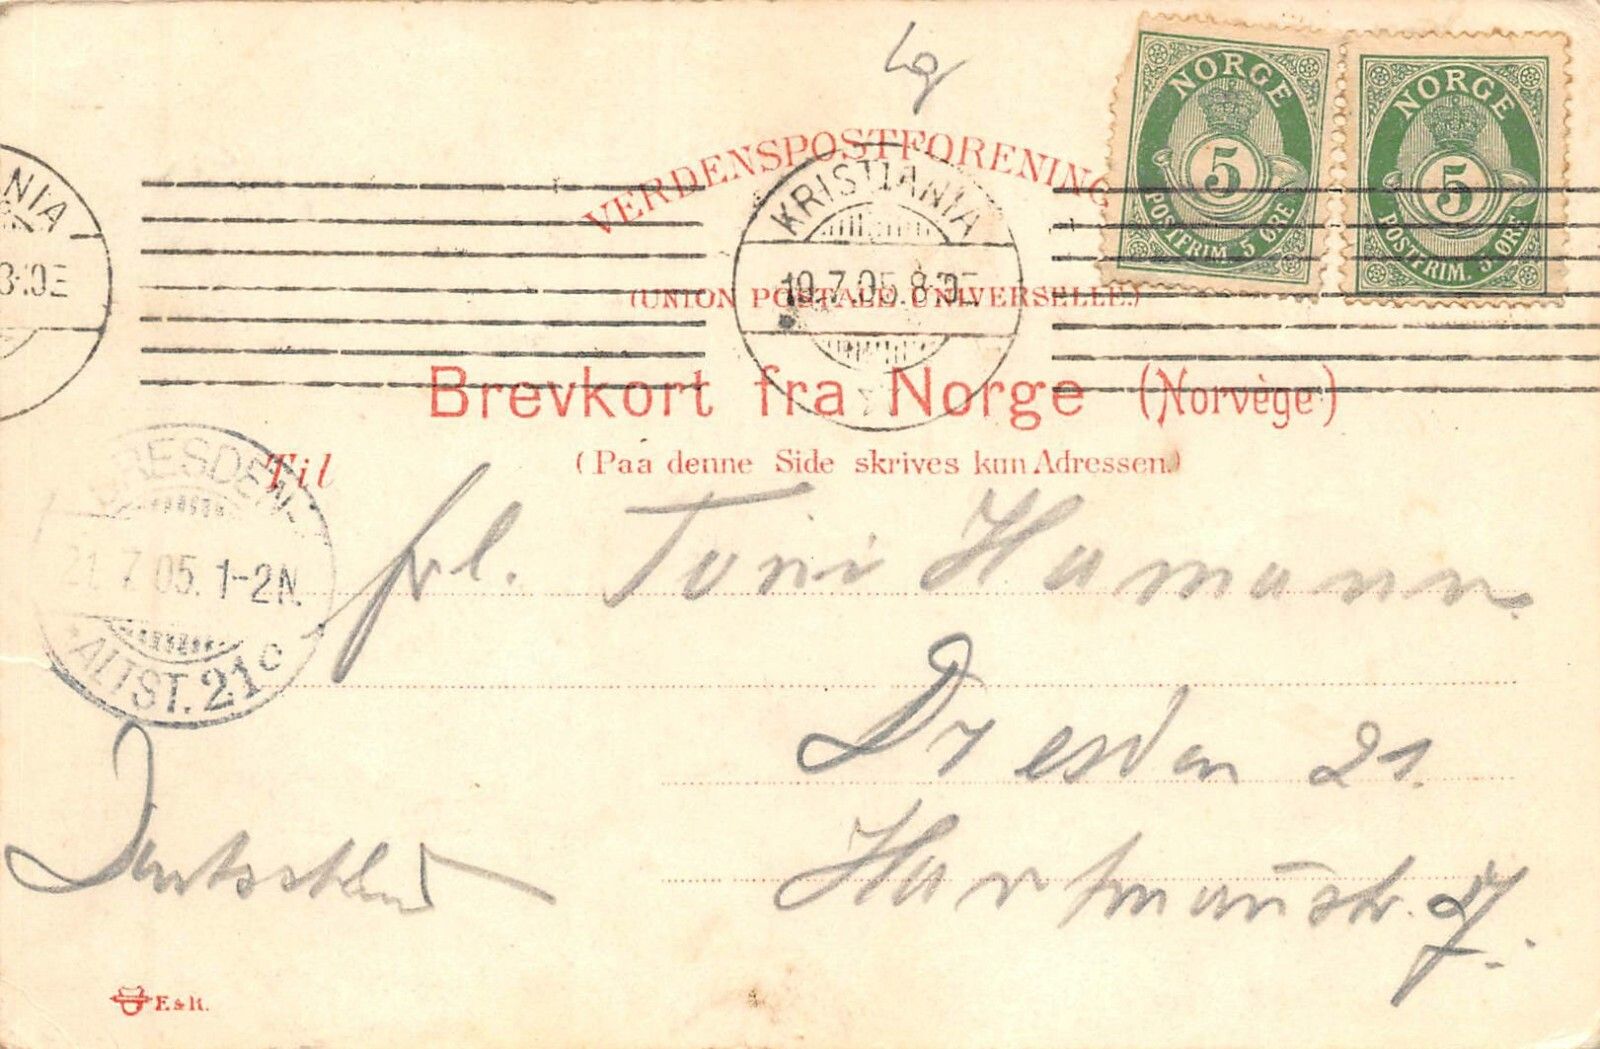 Lg
NORGE
5
POSTFRIM. 5 ØRE
NORGE
5
POSTFRIM. 5 ØRE
VERDENSPOSTFORENING
KRISTIANIA
19.7.05.8-9E
NIA
(UNION POSTALE UNIVERSELLE.)
Brevkort fra Norge (Norvège)
(Paa denne Side skrives kun Adressen.)
Til
DRESDEN-
21.7.05.1-2N.
*ALTST.21c
Frl. Toni Hamann
Dresden 21.
Hartmannstr. 27.
Deutschland
E&R.